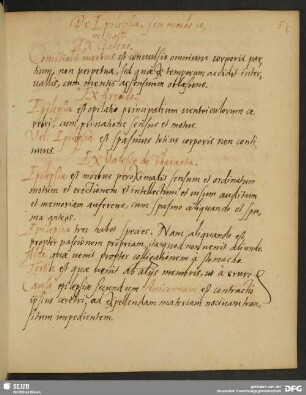 De Epilepsia, seu morbo co
mitiali.
EX Galeno.
Comitialis morbus est convulsio omnium corporis par
tium, non perpetua, sed quæ ex temporum accidit inter,
vallis, cum mentis et sensuum oblæsione.
EX Arnoldo.
Epilepsia est opilatio principalium ventriculorum ce
rebri, cum privatione sensus et motus.
Vel. Epilepsia est spasmus totius corporis non conti
nuus.
EX Valesco de Tharanta.
Epilepsia est morbus sensum et ordinatum
motum et erectionem et intellectum et visum auditum
et memoriam auferens, cum spasmo aliquando et spu
ma
Epilepsia tres habet species. Nam aliquando est
propter passionem propriam, ita quod non venit aliunde.
Alia quæ venit propter colligationem a stomacho.
Tertia est quæ venit ab aliis membris, ut a crure
Causa epilepsiæ secundum Avicennam est contractio
ipsius cerebri, ad expellendam materiam nocivam tran
situm impedientem.
SLUB
Wir führen Wissen.